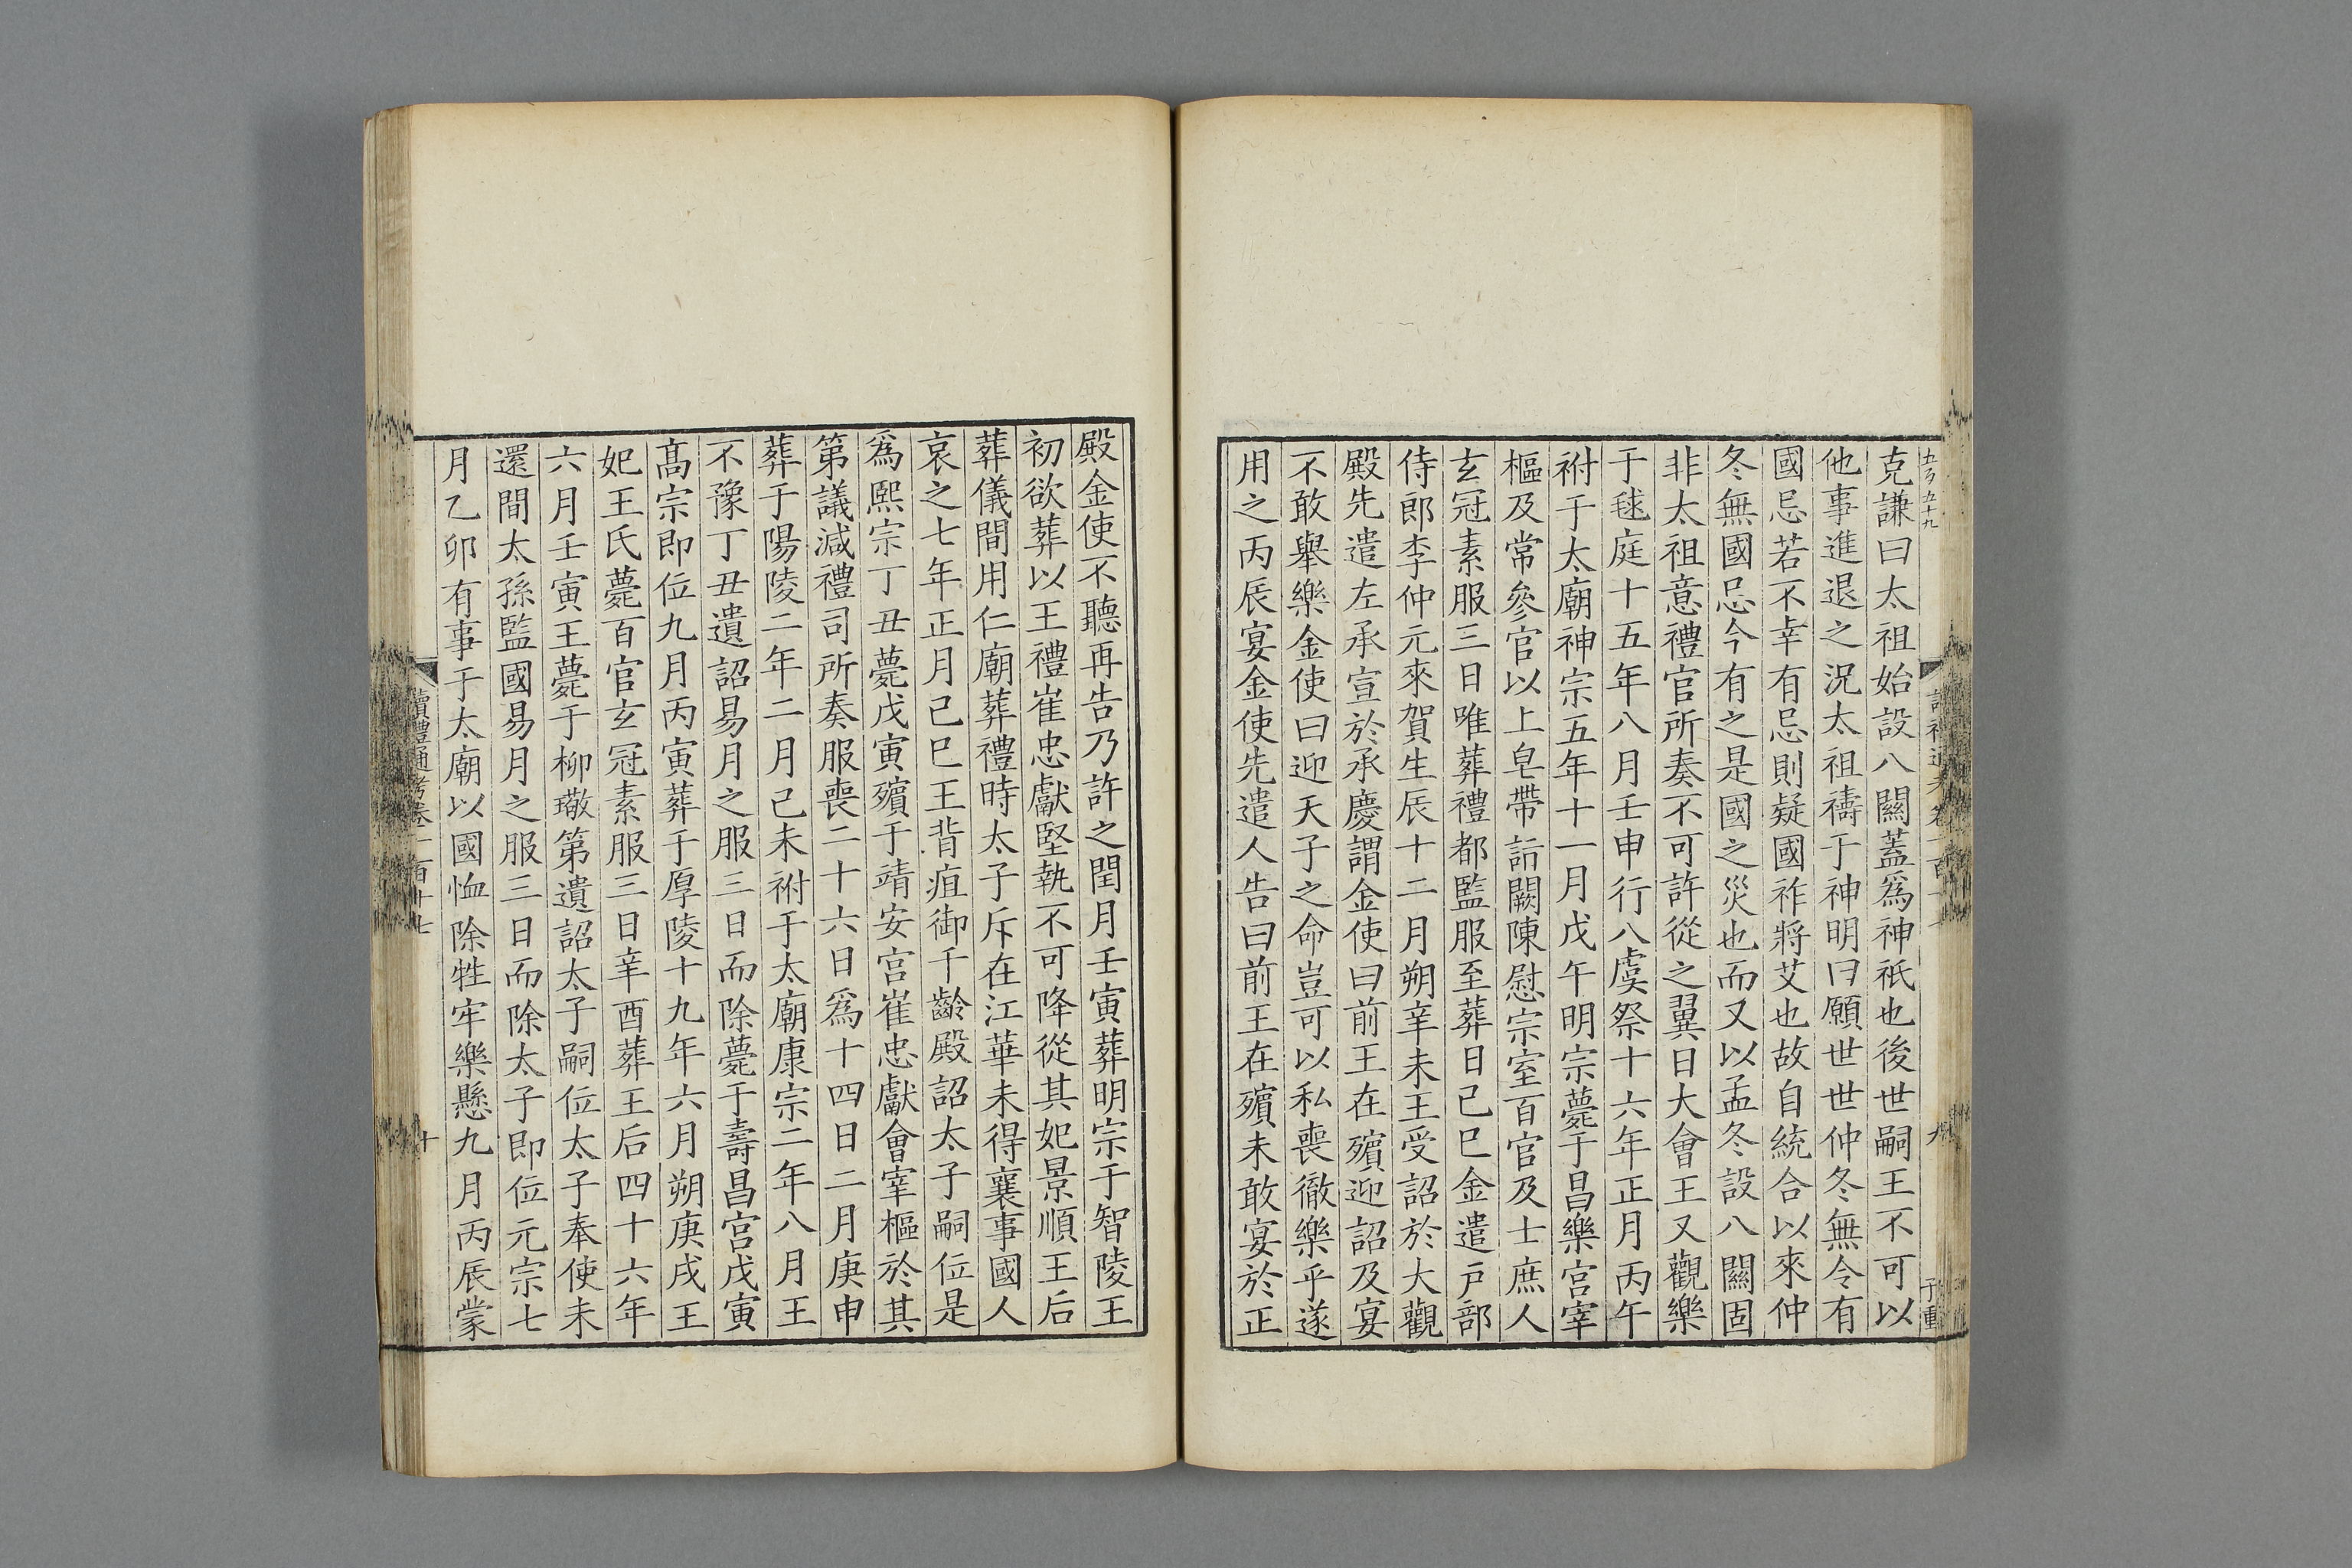 克謙曰太祖始設八關蓋爲神祇也後世嗣王不可以
他事進退之況太祖禱于神明曰願世世仲冬無令有
國忌若不幸有忌則疑國祚將艾也故自統合以來仲
冬無國忌今有之是國之災也而又以孟冬設八關固
非太祖意禮官所奏不可許從之翼日大會王又觀樂
于毬庭十五年八月壬申行八虞祭十六年正月丙午
祔于太廟神宗五年十一月戊午明宗薨于昌樂宮宰
樞及常參官以上皂帶詣闕陳慰宗室百官及士庶人
玄冠素服三日唯葬禮都監服至葬日己巳金遣戶部
侍郎李仲元來賀生辰十二月朔辛未王受詔於大觀
殿先遣左承宣於承慶謂金使曰前王在殯迎詔及宴
不敢舉樂金使曰迎天子之命豈可以私喪徹樂乎遂
用之丙辰宴金使先遣人告曰前王在殯未敢宴於正
殿金使不聽再告乃許之閏月壬寅葬明宗于智陵王
初欲葬以王禮崔忠獻堅執不可降從其妃景順王后
葬儀間用仁廟葬禮時太子斥在江華未得襄事國人
哀之七年正月己巳王背疽御千齡殿詔太子嗣位是
爲熙宗丁丑薨戊寅殯于靖安宮崔忠獻會宰樞於其
第議減禮司所奏服喪二十六日爲十四日二月庚申
葬于陽陵二年二月己未祔于太廟康宗二年八月王
不豫丁丑遺詔易月之服三日而除薨于壽昌宮戊寅
高宗即位九月丙寅葬于厚陵十九年六月朔庚戌王
妃王氏薨百官玄冠素服三日辛酉葬王后四十六年
六月壬寅王薨于柳璥第遺詔太子嗣位太子奉使未
還間太孫監國易月之服三日而除太子即位元宗七
月乙卯有事于太廟以國恤除牲牢樂懸九月丙辰蒙
讀禮通考卷一百十七
十
五百五十九
九